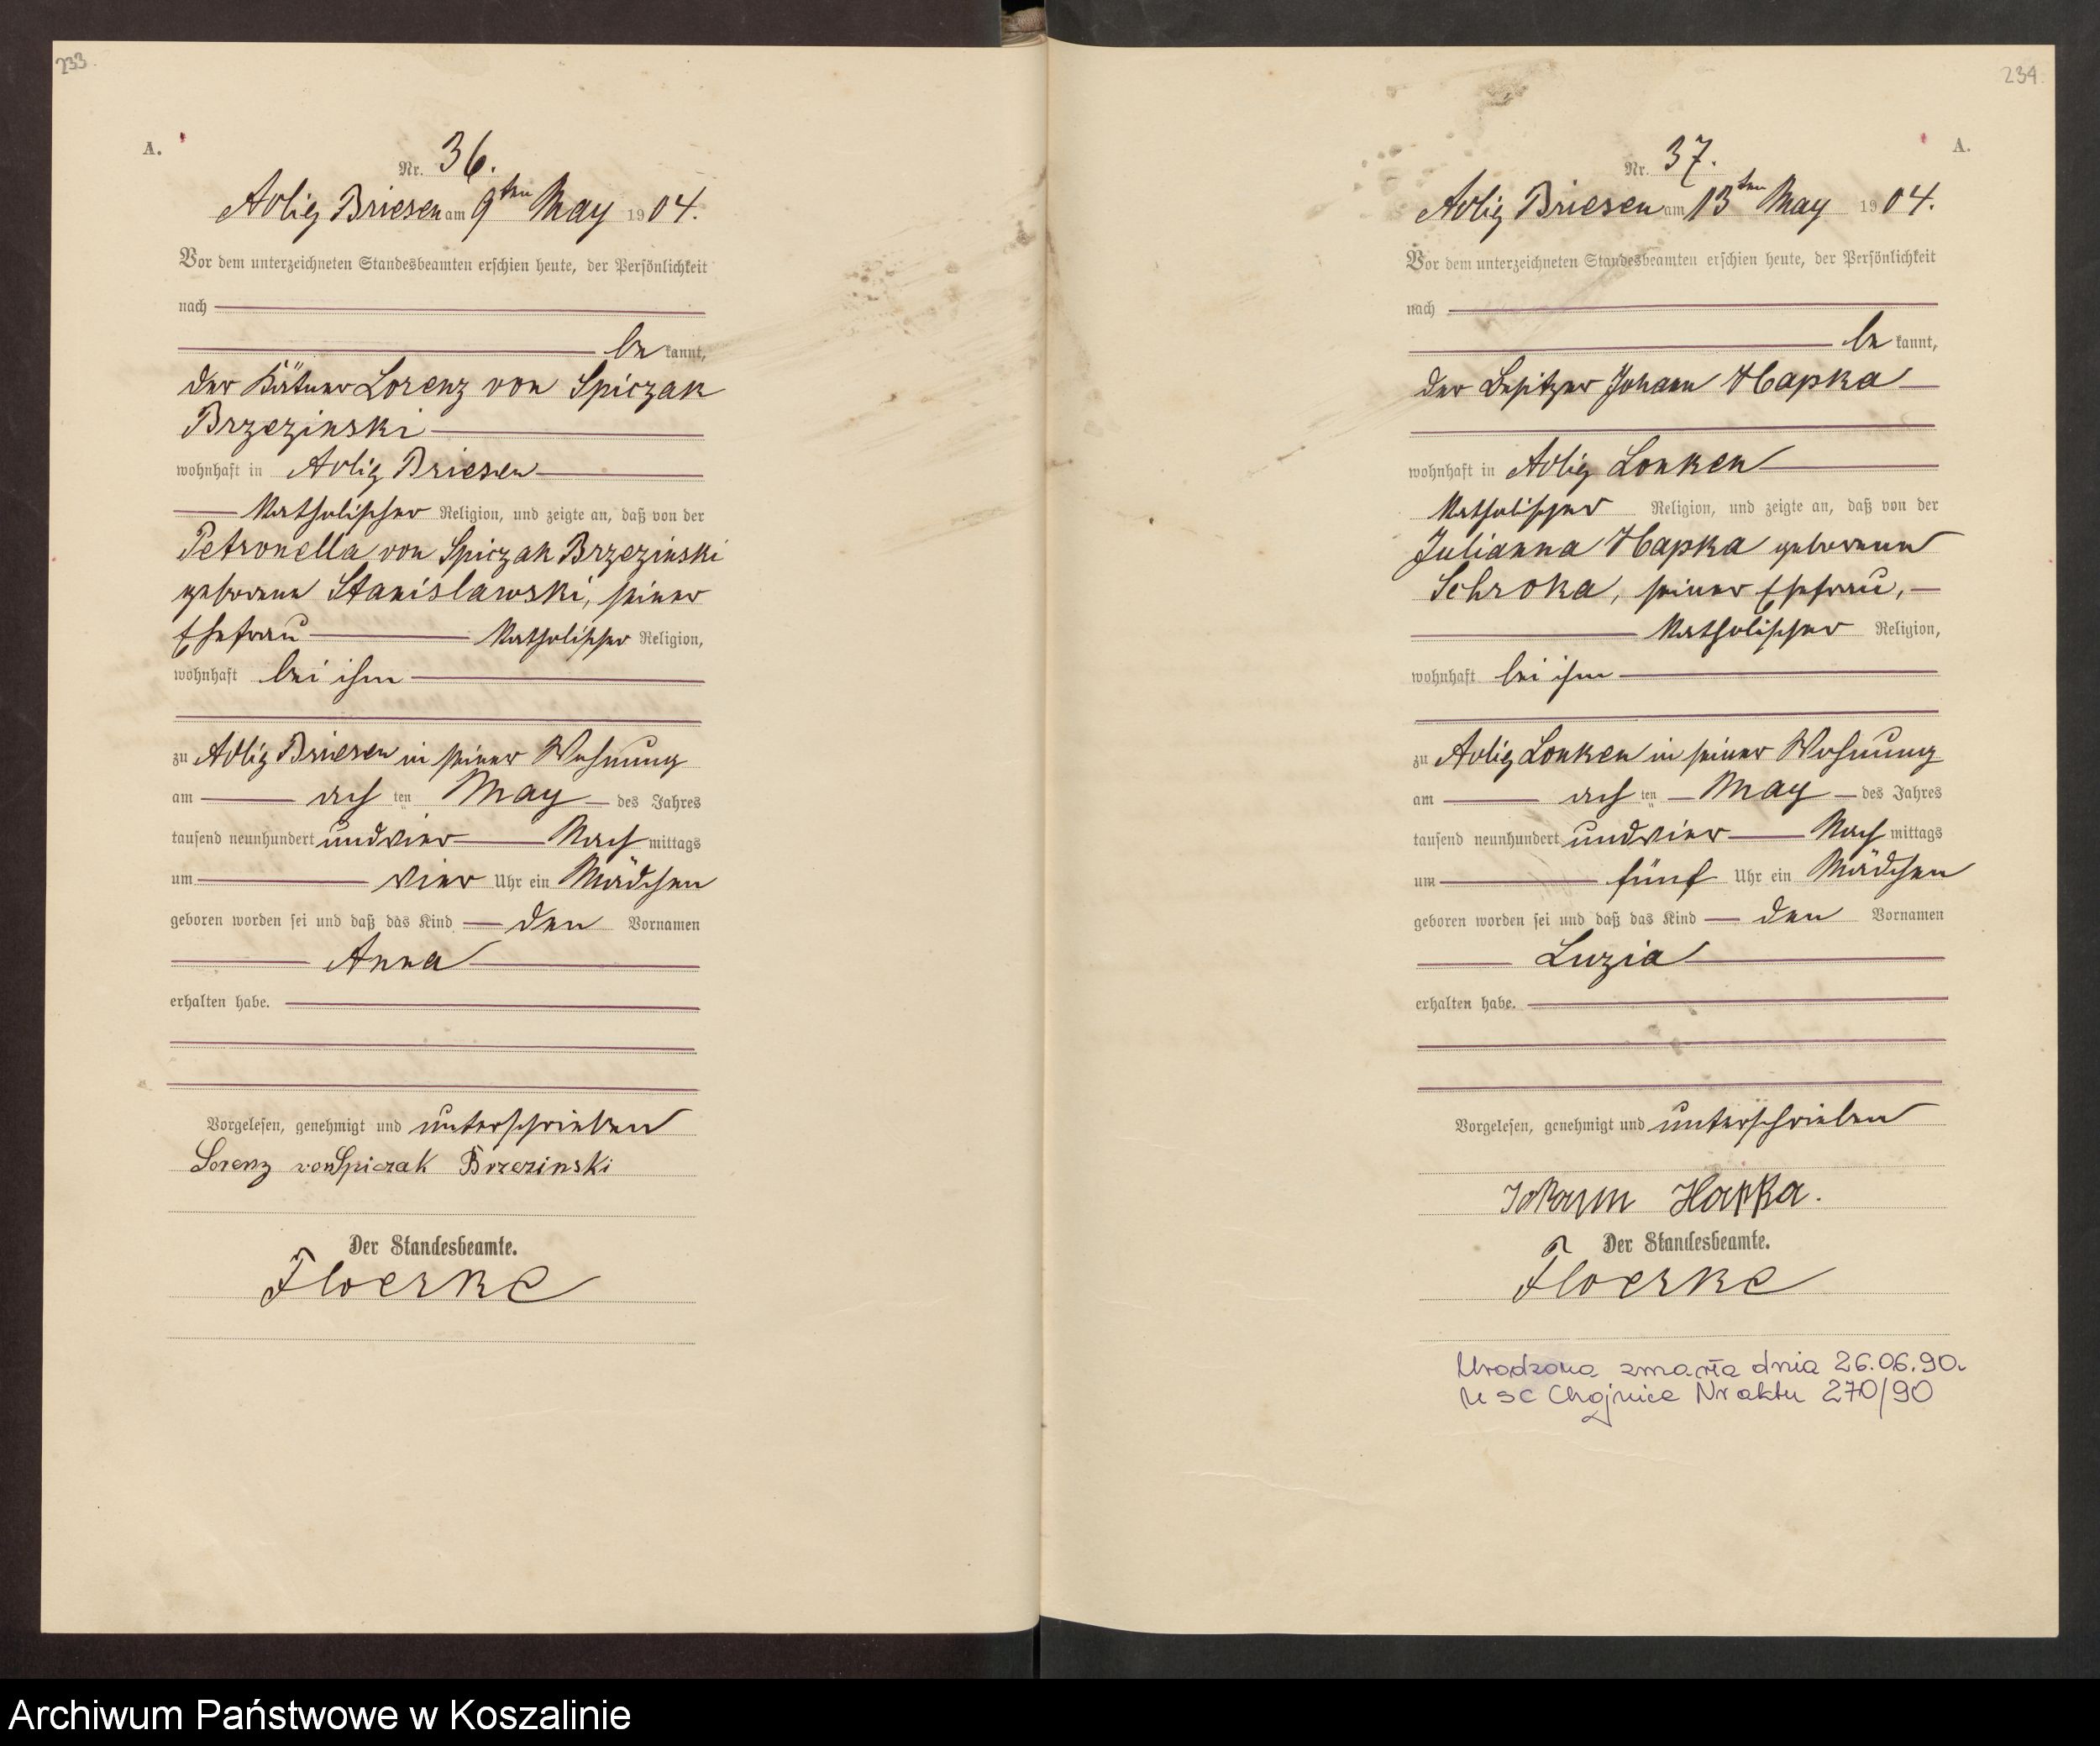 233.
A.
Nr. 36.
Adlig Briesen am 9ten May 1904.
Vor dem unterzeichneten Standesbeamten erschien heute, der Persönlichkeit
nach
be kannt,
der Kätner Lorenz von Spiczak
Brzezinski
wohnhaft in Adlig Briesen
katholischer Religion, und zeigte an, daß von der
Petronella von Spiczak Brzezinski
geborenen Stanislawski, seiner
Ehefrau katholischer Religion,
wohnhaft bei ihm
zu Adlig Briesen in seiner Wohnung
am ach ten May des Jahres
tausend neunhundert und vier Nach mittags
um vier Uhr ein Mädchen
geboren worden sei und daß das Kind den Vornamen
Anna
erhalten habe.
Vorgelesen, genehmigt und unterschrieben
Lorenz von Spiczak Brzezinski
Der Standesbeamte.
Floerke
234.
A.
Nr. 37.
Adlig Briesen am 13ten May 1904.
Vor dem unterzeichneten Standesbeamten erschien heute, der Persönlichkeit
nach
be kannt,
der Besitzer Johann Hapka
wohnhaft in Adlig Lonken
katholischer Religion, und zeigte an, daß von der
Julianna Hapka geborenen
Schroka, seiner Ehefrau,
katholischer Religion,
wohnhaft bei ihm
zu Adlig Lonken in seiner Wohnung
am ach ten May des Jahres
tausend neunhundert und vier Nach mittags
um fünf Uhr ein Mädchen
geboren worden sei und daß das Kind den Vornamen
Luzia
erhalten habe.
Vorgelesen, genehmigt und unterschrieben
Johann Hapka.
Der Standesbeamte.
Floerke
Urodzona zmarła dnia 26.06.90.
USC Chojnice Nr aktu 270/90
Archiwum Państwowe w Koszalinie